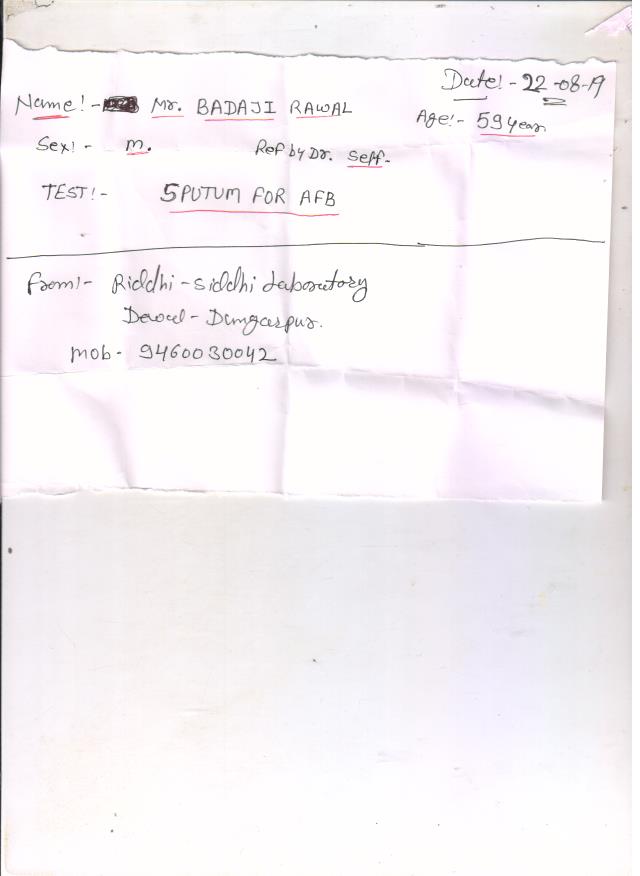 Date!- 22-08-19
Name!- Mr. BADAJI RAWAL
Age!- 59 year
Sex!- M.
Ref by Dr. Self.
TEST!- SPUTUM FOR AFB
From!- Riddhi-Siddhi Laboratory
Dewal-Dungarpur.
mob- 9460030042